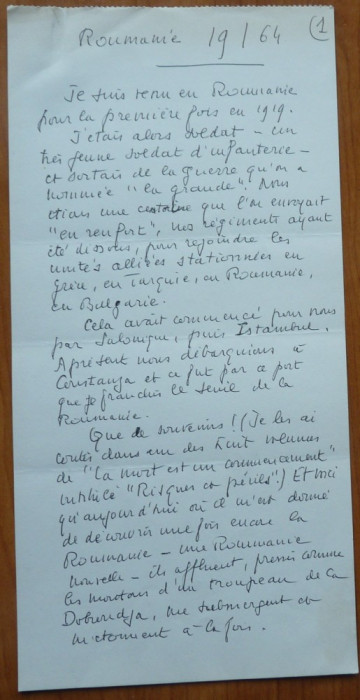 (1)
Roumanie 19/64
Je suis venu en Roumanie
pour la première fois en 1919.
J'étais alors soldat – un
très jeune soldat d'infanterie –
et sortais de la guerre qu'on a
nommée "la grande". Nous
étions une centaine que l'on envoyait
"en renfort", nos régiments ayant
été dissous, pour rejoindre les
unités alliées stationnées en
Grèce, en Turquie, en Roumanie,
en Bulgarie.
Cela avait commencé pour nous
par Salonique, puis Istambul.
A présent nous débarquions à
Constanza et ce fut par ce port
que je franchis le seuil de la
Roumanie.
Que de souvenirs ! (Je les ai
contés dans un des huit volumes
de "La mort est un commencement"
intitulé "Risques et périls".) Et voici
qu'aujourd'hui où il m'est donné
de découvrir une fois encore la
Roumanie – une Roumanie
nouvelle – ils affluent, pressés comme
les moutons d'un troupeau de la
Dobroudja, me submergent et
m'étonnent à la fois.